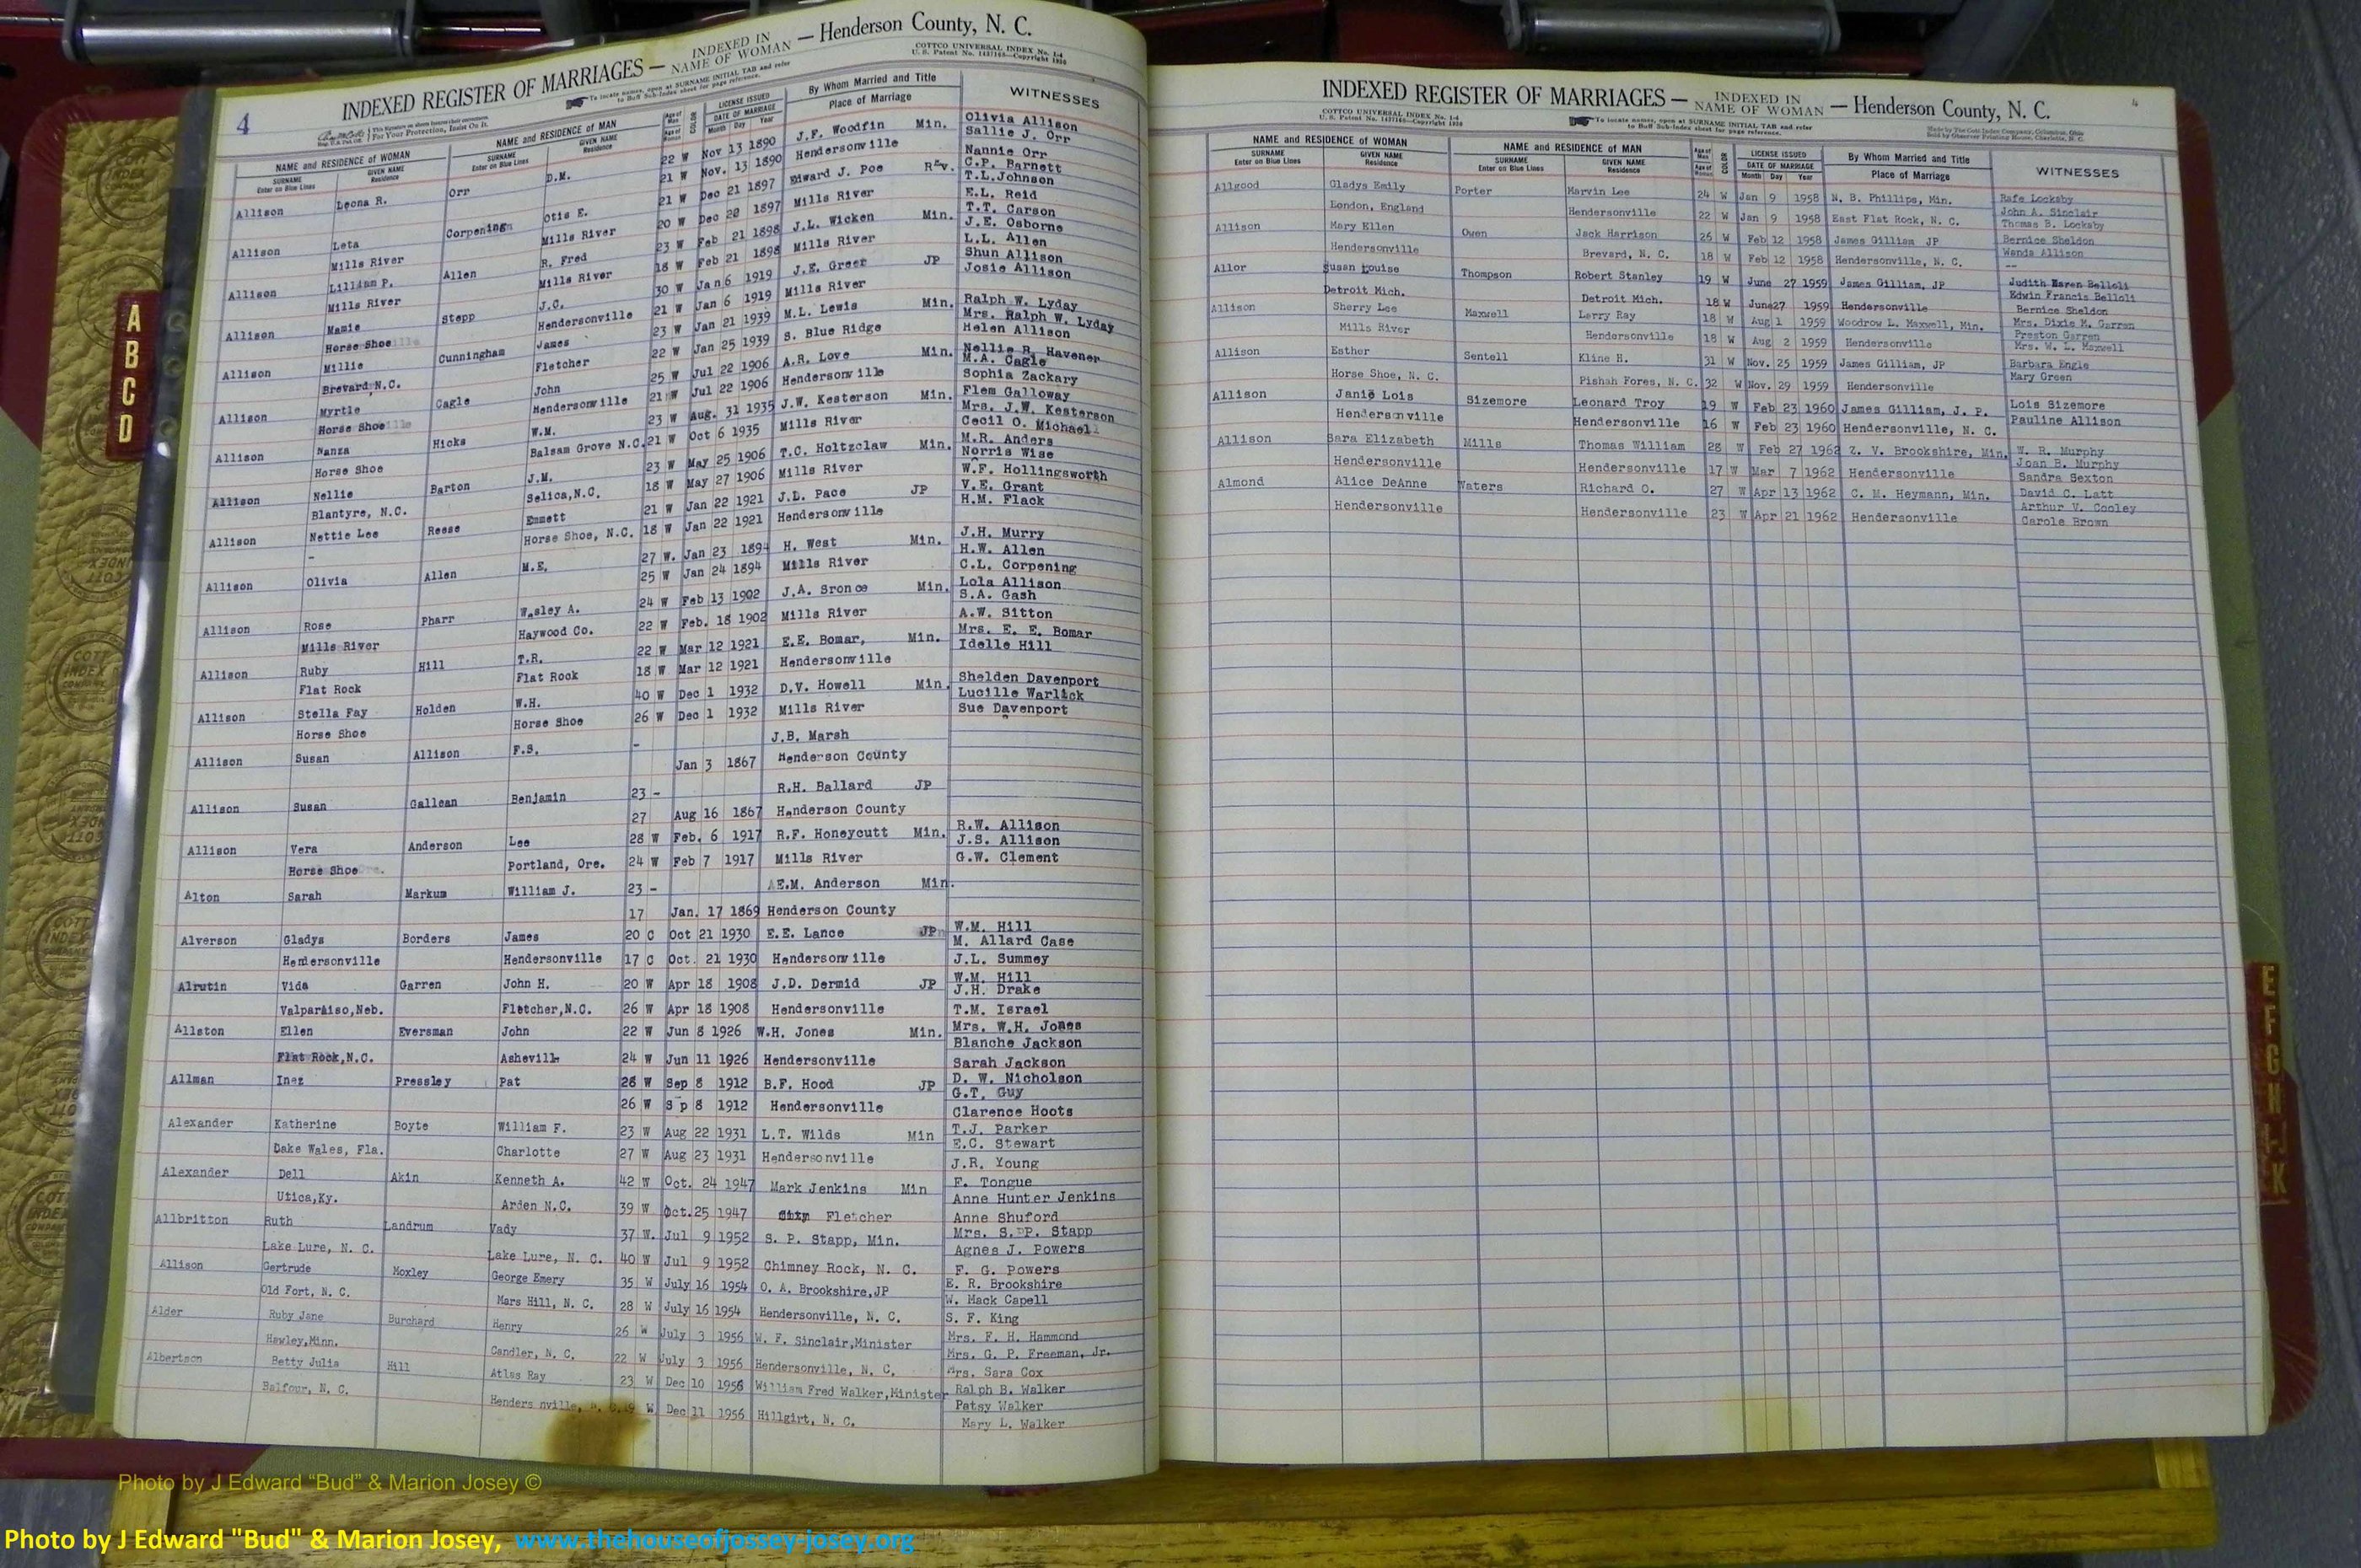 4
INDEXED REGISTER OF MARRIAGES — INDEXED IN NAME OF WOMAN — Henderson County, N. C.
To locate names, open at SURNAME INITIAL TAB and refer to Buff Sub-Index sheet for page reference.
COTTCO UNIVERSAL INDEX No. 1-4
U. S. Patent No. 1437169—Copyright 1936
For Your Protection, Insist On It.
NAME and RESIDENCE OF WOMAN NAME and RESIDENCE OF MAN LICENSE ISSUED By Whom Married and Title WITNESSES
SURNAME Enter on Blue Lines GIVEN NAME Residence SURNAME Enter on Blue Lines GIVEN NAME Residence COLOR DATE OF MARRIAGE Month Day Year Place of Marriage
Allison Leona R. Orr D.M. 22 W Nov 13 1890 J.F. Woodfin Min. Olivia Allison
Sallie J. Orr
21 W Nov. 13 1890 Hendersonville Nannie Orr
Allison Leta Corpening Otis E. 21 W Dec 21 1897 Edward J. Poe Rev. C.P. Barnett
T.L. Johnson
Mills River Mills River 20 W Dec 20 1897 Mills River E.L. Reid
Allison Lilliam P. Allen R. Fred 23 W Feb 21 1898 J.L. Wicken Min. T.T. Carson
J.E. Osborne
Mills River Mills River 18 W Feb 21 1898 Mills River L.L. Allen
Allison Mamie Stepp J.C. 30 W Jan 6 1919 J.E. Greer JP Shun Allison
Josie Allison
Horse Shoe Hendersonville 21 W Jan 6 1919 Mills River
Allison Millie Cunningham James 23 W Jan 21 1939 M.L. Lewis Min. Ralph W. Lyday
Mrs. Ralph W. Lyday
Brevard, N.C. Fletcher 22 W Jan 25 1939 S. Blue Ridge Helen Allison
Allison Myrtle Cagle John 25 W Jul 22 1906 A.R. Love Min. Nellie R. Havener
M.A. Cagle
Horse Shoe Hendersonville 21 W Jul 22 1906 Hendersonville Sophia Zackary
Allison Nanza Hicks W.M. 23 W Aug. 31 1935 J.W. Kesterson Min. Flem Galloway
Mrs. J.W. Kesterson
Horse Shoe Balsam Grove N.C. 21 W Oct 6 1935 Mills River Cecil O. Michael
Allison Nellie Barton J.M. 23 W May 25 1906 T.C. Holtzclaw Min. M.R. Anders
Norris Wise
Blantyre, N.C. Selica, N.C. 18 W May 27 1906 Mills River W.F. Hollingsworth
Allison Nettie Lee Reese Emmett 21 W Jan 22 1921 J.D. Pace JP V.E. Grant
H.M. Flack
- Horse Shoe, N.C. 18 W Jan 22 1921 Hendersonville
Allison Olivia Allen M.E. 27 W. Jan 23 1894 H. West Min. J.H. Murry
H.W. Allen
25 W Jan 24 1894 Mills River C.L. Corpening
Allison Rose Pharr Wesley A. 24 W Feb 13 1902 J.A. Sronce Min. Lola Allison
S.A. Gash
Mills River Haywood Co. 22 W Feb. 18 1902 Mills River A.W. Sitton
Allison Ruby Hill T.R. 22 W Mar 12 1921 E.E. Bomar, Min. Mrs. E. E. Bomar
Idelle Hill
Flat Rock Flat Rock 18 W Mar 12 1921 Hendersonville
Allison Stella Fay Holden W.H. 40 W Dec 1 1932 D.V. Howell Min. Shelden Davenport
Lucille Warlick
Horse Shoe Horse Shoe 26 W Dec 1 1932 Mills River Sue Davenport
Allison Susan Allison F.S. - J.B. Marsh
Jan 3 1867 Henderson County
Allison Susan Gallean Benjamin 23 - R.H. Ballard JP
27 Aug 16 1867 Henderson County
Allison Vera Anderson Lee 28 W Feb. 6 1917 R.F. Honeycutt Min. R.W. Allison
J.S. Allison
Horse Shoe Portland, Ore. 24 W Feb 7 1917 Mills River G.W. Clement
Alton Sarah Markum William J. 23 - AE.M. Anderson Min.
17 Jan. 17 1869 Henderson County
Alverson Gladys Borders James 20 C Oct 21 1930 E.E. Lance JP W.M. Hill
M. Allard Case
Hendersonville Hendersonville 17 C Oct. 21 1930 Hendersonville J.L. Summey
Alrutin Vida Garren John H. 20 W Apr 18 1908 J.D. Dermid JP W.M. Hill
J.H. Drake
Valparaiso, Neb. Fletcher, N.C. 26 W Apr 18 1908 Hendersonville T.M. Israel
Allston Ellen Eversman John 22 W Jun 8 1926 W.H. Jones Min. Mrs. W.H. Jones
Blanche Jackson
Flat Rock, N.C. Ashevill 24 W Jun 11 1926 Hendersonville Sarah Jackson
Allman Inez Pressley Pat 28 W Sep 8 1912 B.F. Hood JP D. W. Nicholson
G.T. Guy
26 W Sep 8 1912 Hendersonville Clarence Hoots
Alexander Katherine Boyte William F. 23 W Aug 22 1931 L.T. Wilds Min T.J. Parker
E.C. Stewart
Lake Wales, Fla. Charlotte 27 W Aug 23 1931 Hendersonville J.R. Young
Alexander Dell Akin Kenneth A. 42 W Oct. 24 1947 Mark Jenkins Min F. Tongue
Anne Hunter Jenkins
Utica, Ky. Arden N.C. 39 W Oct. 25 1947 Fletcher Anne Shuford
Allbritton Ruth Landrum Vady 37 W. Jul 9 1952 S. P. Stapp, Min. Mrs. S. P. Stapp
Agnes J. Powers
Lake Lure, N. C. Lake Lure, N. C. 40 W Jul 9 1952 Chimney Rock, N. C. F. G. Powers
Allison Gertrude Moxley George Emery 35 W July 16 1954 O. A. Brookshire, JP E. R. Brookshire
W. Mack Capell
Old Fort, N. C. Mars Hill, N. C. 28 W July 16 1954 Hendersonville, N. C. S. F. King
Alder Ruby Jane Burchard Henry 26 W July 3 1956 W. F. Sinclair, Minister Mrs. F. H. Hammond
Mrs. G. P. Freeman, Jr.
Hawley, Minn. Candler, N. C. 22 W July 3 1956 Hendersonville, N. C. Mrs. Sara Cox
Albertson Betty Julia Hill Atlas Ray 23 W Dec 10 1956 William Fred Walker, Minister Ralph B. Walker
Patsy Walker
Balfour, N. C. Henders nville, N. C. 19 W Dec 11 1956 Hillgirt, N. C. Mary L. Walker
4
INDEXED REGISTER OF MARRIAGES — INDEXED IN NAME OF WOMAN — Henderson County, N. C.
COTTCO UNIVERSAL INDEX No. 1-4
U. S. Patent No. 1437169—Copyright 1936
To locate names, open at SURNAME INITIAL TAB and refer to Buff Sub-Index sheet for page reference.
Made by The Cott Index Company, Columbus, Ohio
Sold by Observer Printing House, Charlotte, N. C.
NAME and RESIDENCE OF WOMAN NAME and RESIDENCE OF MAN LICENSE ISSUED By Whom Married and Title WITNESSES
SURNAME Enter on Blue Lines GIVEN NAME Residence SURNAME Enter on Blue Lines GIVEN NAME Residence COLOR DATE OF MARRIAGE Month Day Year Place of Marriage
Allgood Gladys Emily Porter Marvin Lee 24 W Jan 9 1958 N. B. Phillips, Min. Rafe Locksby
John A. Sinclair
London, England Hendersonville 22 W Jan 9 1958 East Flat Rock, N. C. Thomas B. Locksby
Allison Mary Ellen Owen Jack Harrison 26 W Feb 12 1958 James Gilliam JP Bernice Sheldon
Wanda Allison
Hendersonville Brevard, N. C. 18 W Feb 12 1958 Hendersonville, N. C. --
Allor Susan Louise Thompson Robert Stanley 19 W June 27 1959 James Gilliam, JP Judith Karen Belloli
Edwin Francis Belloli
Detroit Mich. Detroit Mich. 18 W June 27 1959 Hendersonville Bernice Sheldon
Allison Sherry Lee Maxwell Larry Ray 18 W Aug 1 1959 Woodrow L. Maxwell, Min. Mrs. Dixie M. Garren
Preston Garren
Mills River Hendersonville 18 W Aug 2 1959 Hendersonville Mrs. W. L. Maxwell
Allison Esther Sentell Kline H. 31 W Nov. 25 1959 James Gilliam, JP Barbara Engle
Mary Green
Horse Shoe, N. C. Pishah Fores, N. C. 32 W Nov. 29 1959 Hendersonville
Allison Janie Lois Sizemore Leonard Troy 19 W Feb 23 1960 James Gilliam, J. P. Lois Sizemore
Pauline Allison
Hendersonville Hendersonville 16 W Feb 23 1960 Hendersonville, N. C.
Allison Sara Elizabeth Mills Thomas William 28 W Feb 27 1962 Z. V. Brookshire, Min. W. R. Murphy
Joan B. Murphy
Hendersonville Hendersonville 17 W Mar 7 1962 Hendersonville Sandra Sexton
Almond Alice DeAnne Waters Richard O. 27 W Apr 13 1962 C. M. Heymann, Min. David C. Latt
Arthur V. Cooley
Hendersonville Hendersonville 23 W Apr 21 1962 Hendersonville Carole Brown
A
B
C
D
E
F
G
H
K
COTT
INDEX
COMPANY
Photo by J Edward “Bud” & Marion Josey ©
Photo by J Edward "Bud" & Marion Josey, www.thehouseofjossey-josey.org